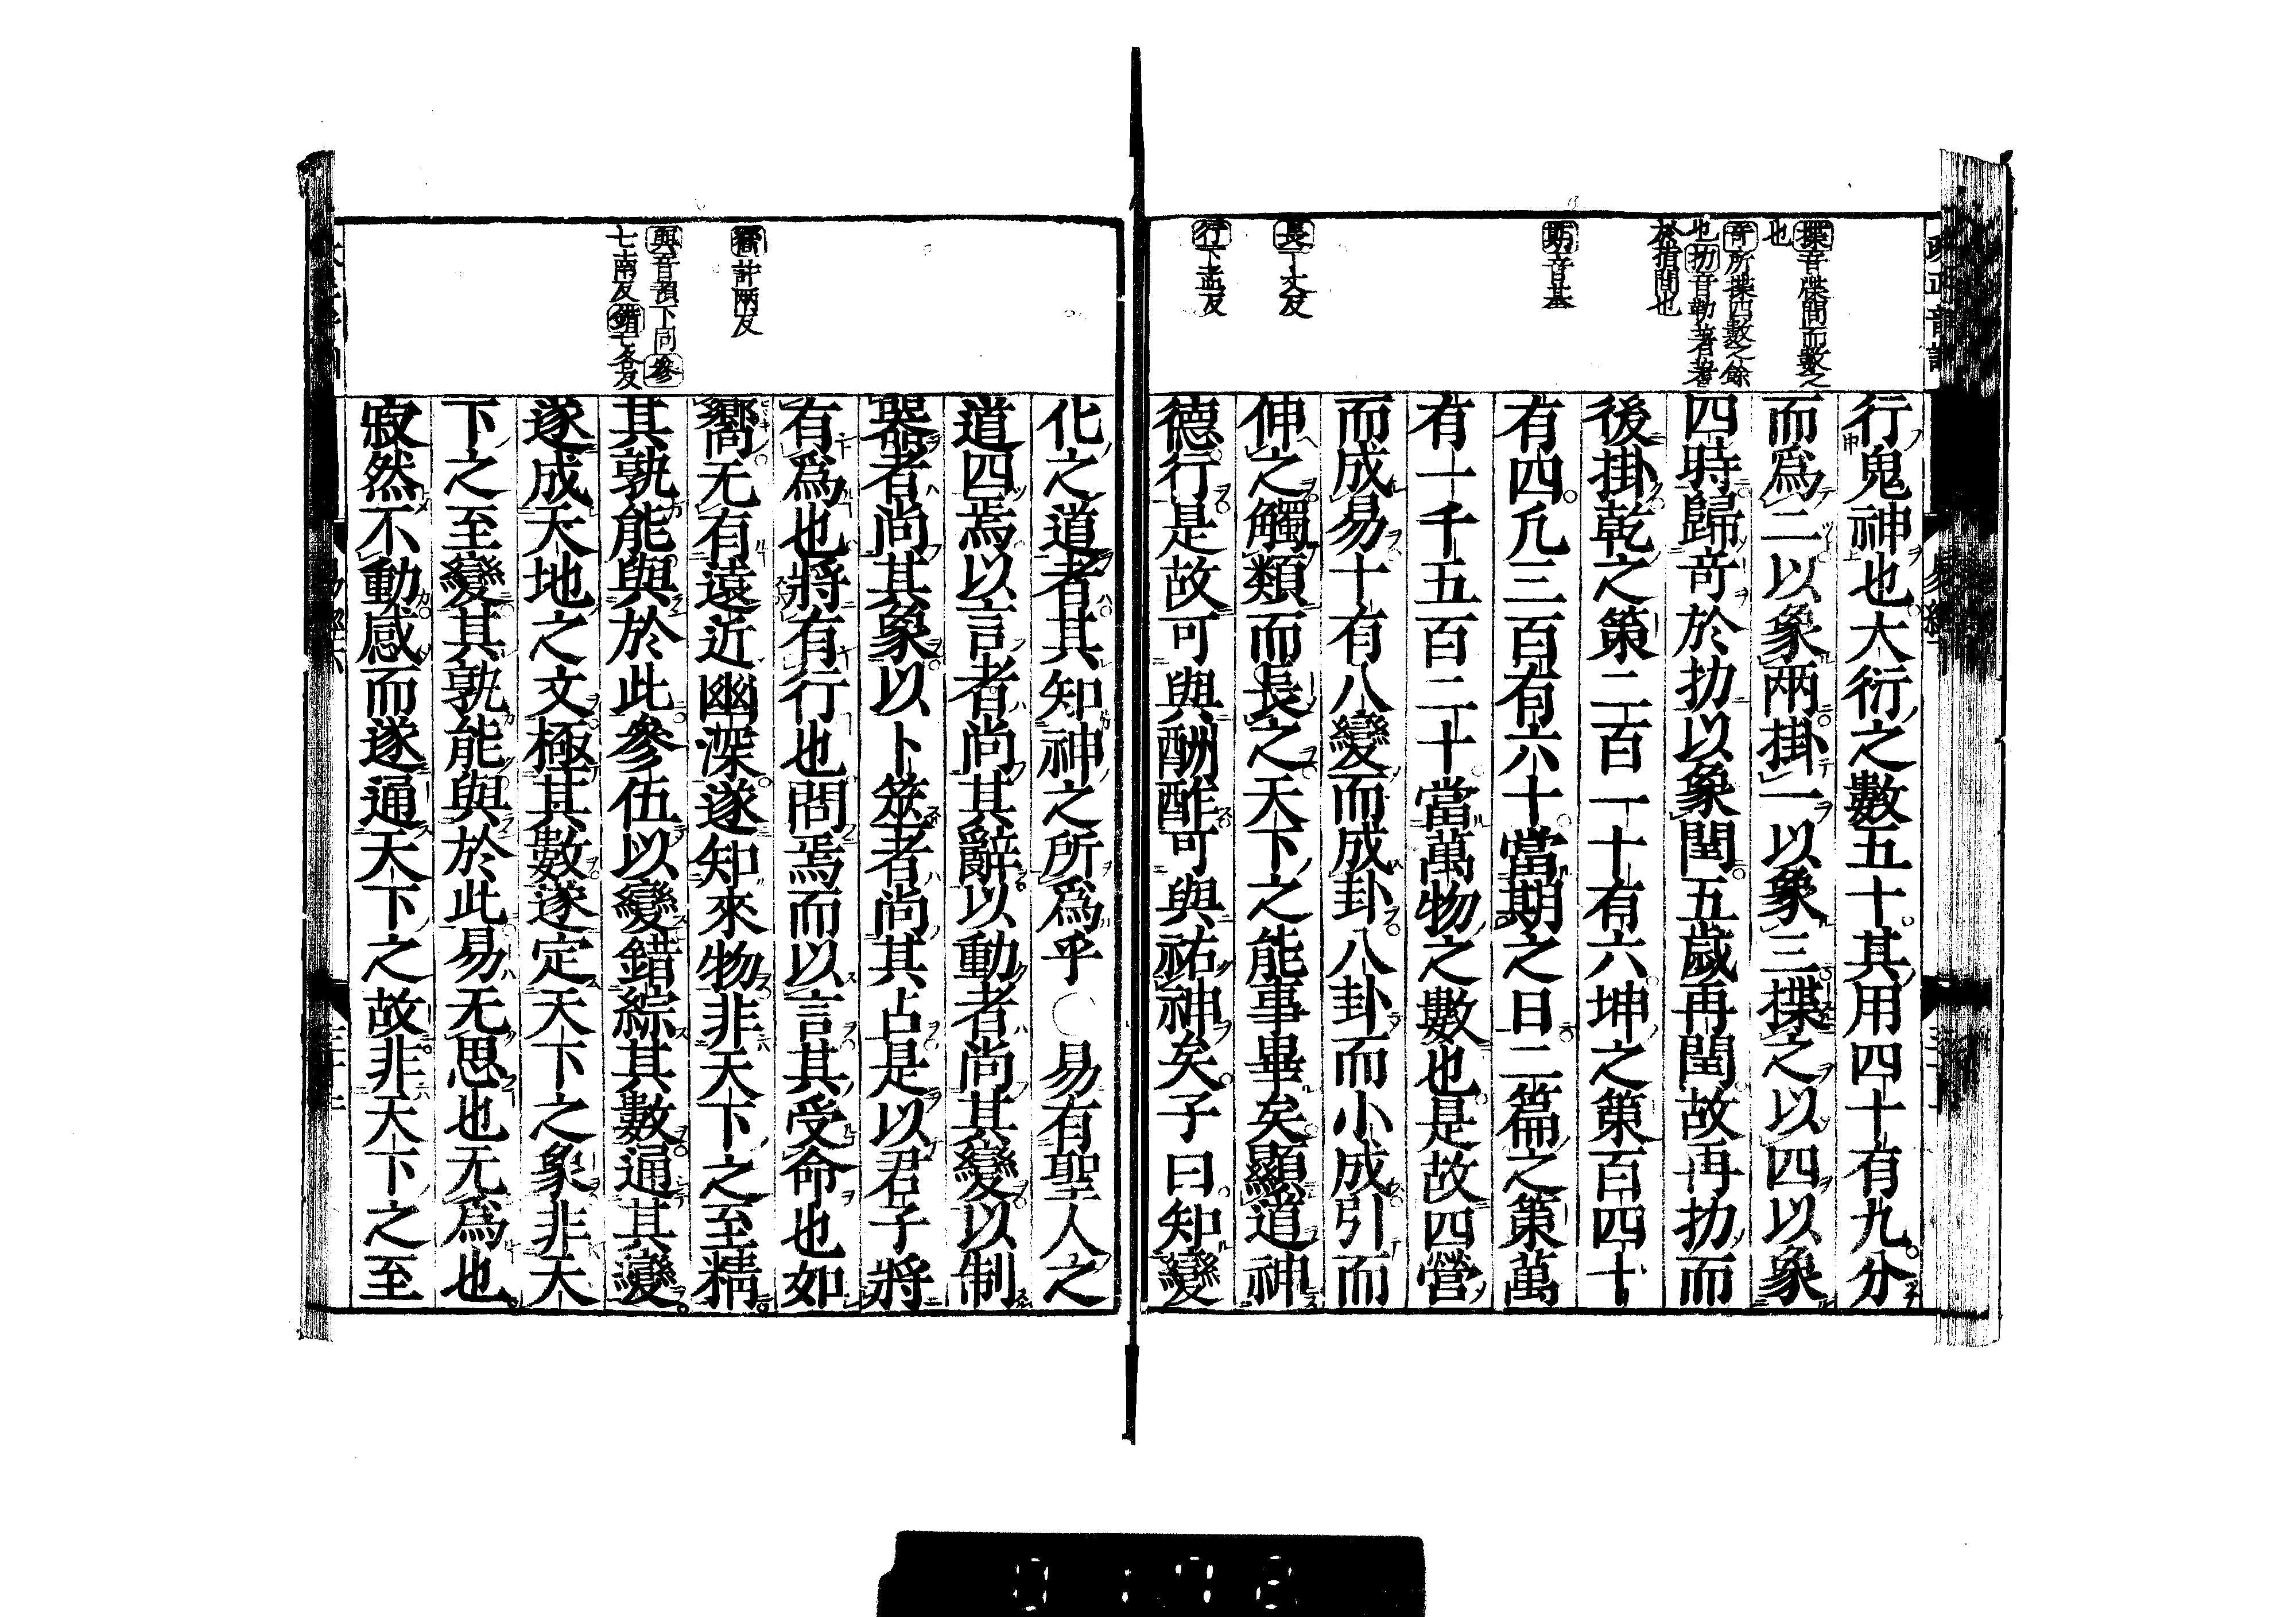 揲音牒間而數之
也
奇所揲四數之餘
也扐音勒著蓍
於指間也
朞音基
長丁丈反
行下孟反
行鬼神也大衍之數五十其用四十有九分
而爲二以象兩掛一以象三揲之以四以象
四時歸奇於扐以象閏五歲再閏故再扐而
後掛乾之策二百一十有六坤之策百四十
有四凡三百有六十當期之日二篇之策萬
有一千五百二十當萬物之數也是故四營
而成易十有八變而成卦八卦而小成引而
伸之觸類而長之天下之能事畢矣顯道神
德行是故可與酬酢可與祐神矣子曰知變
嚮許兩反
與音預下同參
七南反錯七各反
化之道者其知神之所爲乎○易有聖人之
道四焉以言者尚其辭以動者尚其變以制
器者尚其象以卜筮者尚其占是以君子將
有爲也將有行也問焉而以言其受命也如
嚮无有遠近幽深遂知來物非天下之至精
其孰能與於此參伍以變錯綜其數通其變
遂成天地之文極其數遂定天下之象非天
下之至變其孰能與於此易无思也无爲也
寂然不動感而遂通天下之故非天下之至